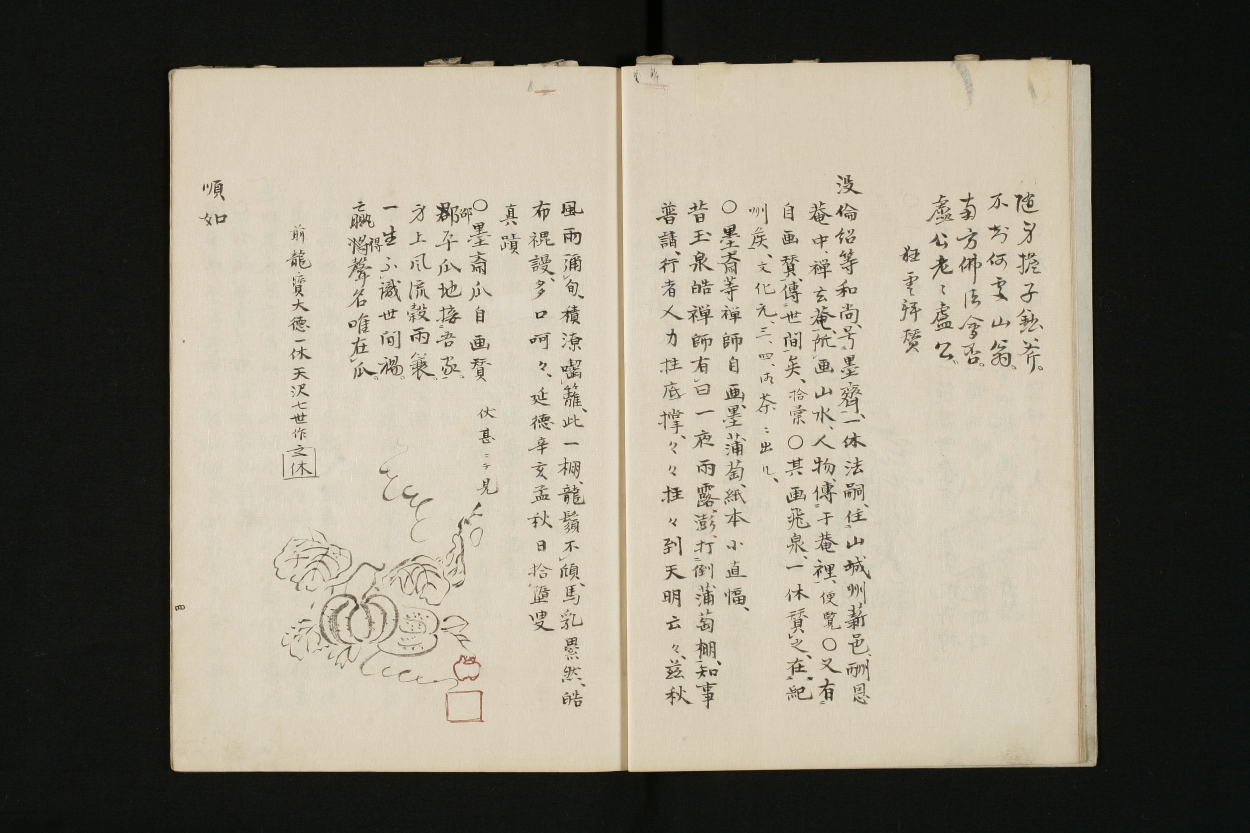 随身担子鈯斧。
不知何処山翁。
南方佛法會否。
盧公老〻盧公。
狂雲拜賛
没倫紹等和尚、号墨齋、一休法嗣、住山城州薪邑、酬恩
菴中、禅玄菴、所画山水、人物、傳于菴裡、便覧〇又有
自画賛、傳世間矣、拾棠〇其画飛泉、一休賛之、在紀
州矣、文化元、三、四、丙茶〻出ル、
〇墨斎等禅師自画墨蒲萄、紙本小直幅、
昔玉泉皓禅師有曰一夜雨露澎、打倒蒲萄棚、知事
普請、行者人力拄底撑、々々拄々到天明云々、茲秋
風雨彌旬、積潦囓籬、此一棚、龍鬚不傾、馬乳累然、皓
布裩謾、多口呵々、延德辛亥孟秋日拾𫝶叟
真蹟
〇墨斎瓜自画賛
邵平瓜地接吾家
身上風流穀雨蓑
一生不識世間禍。
贏得将聲名唯在瓜。
伏甚〻ヲ見
前龍寳大德一休天沢七世作之休
順如
四